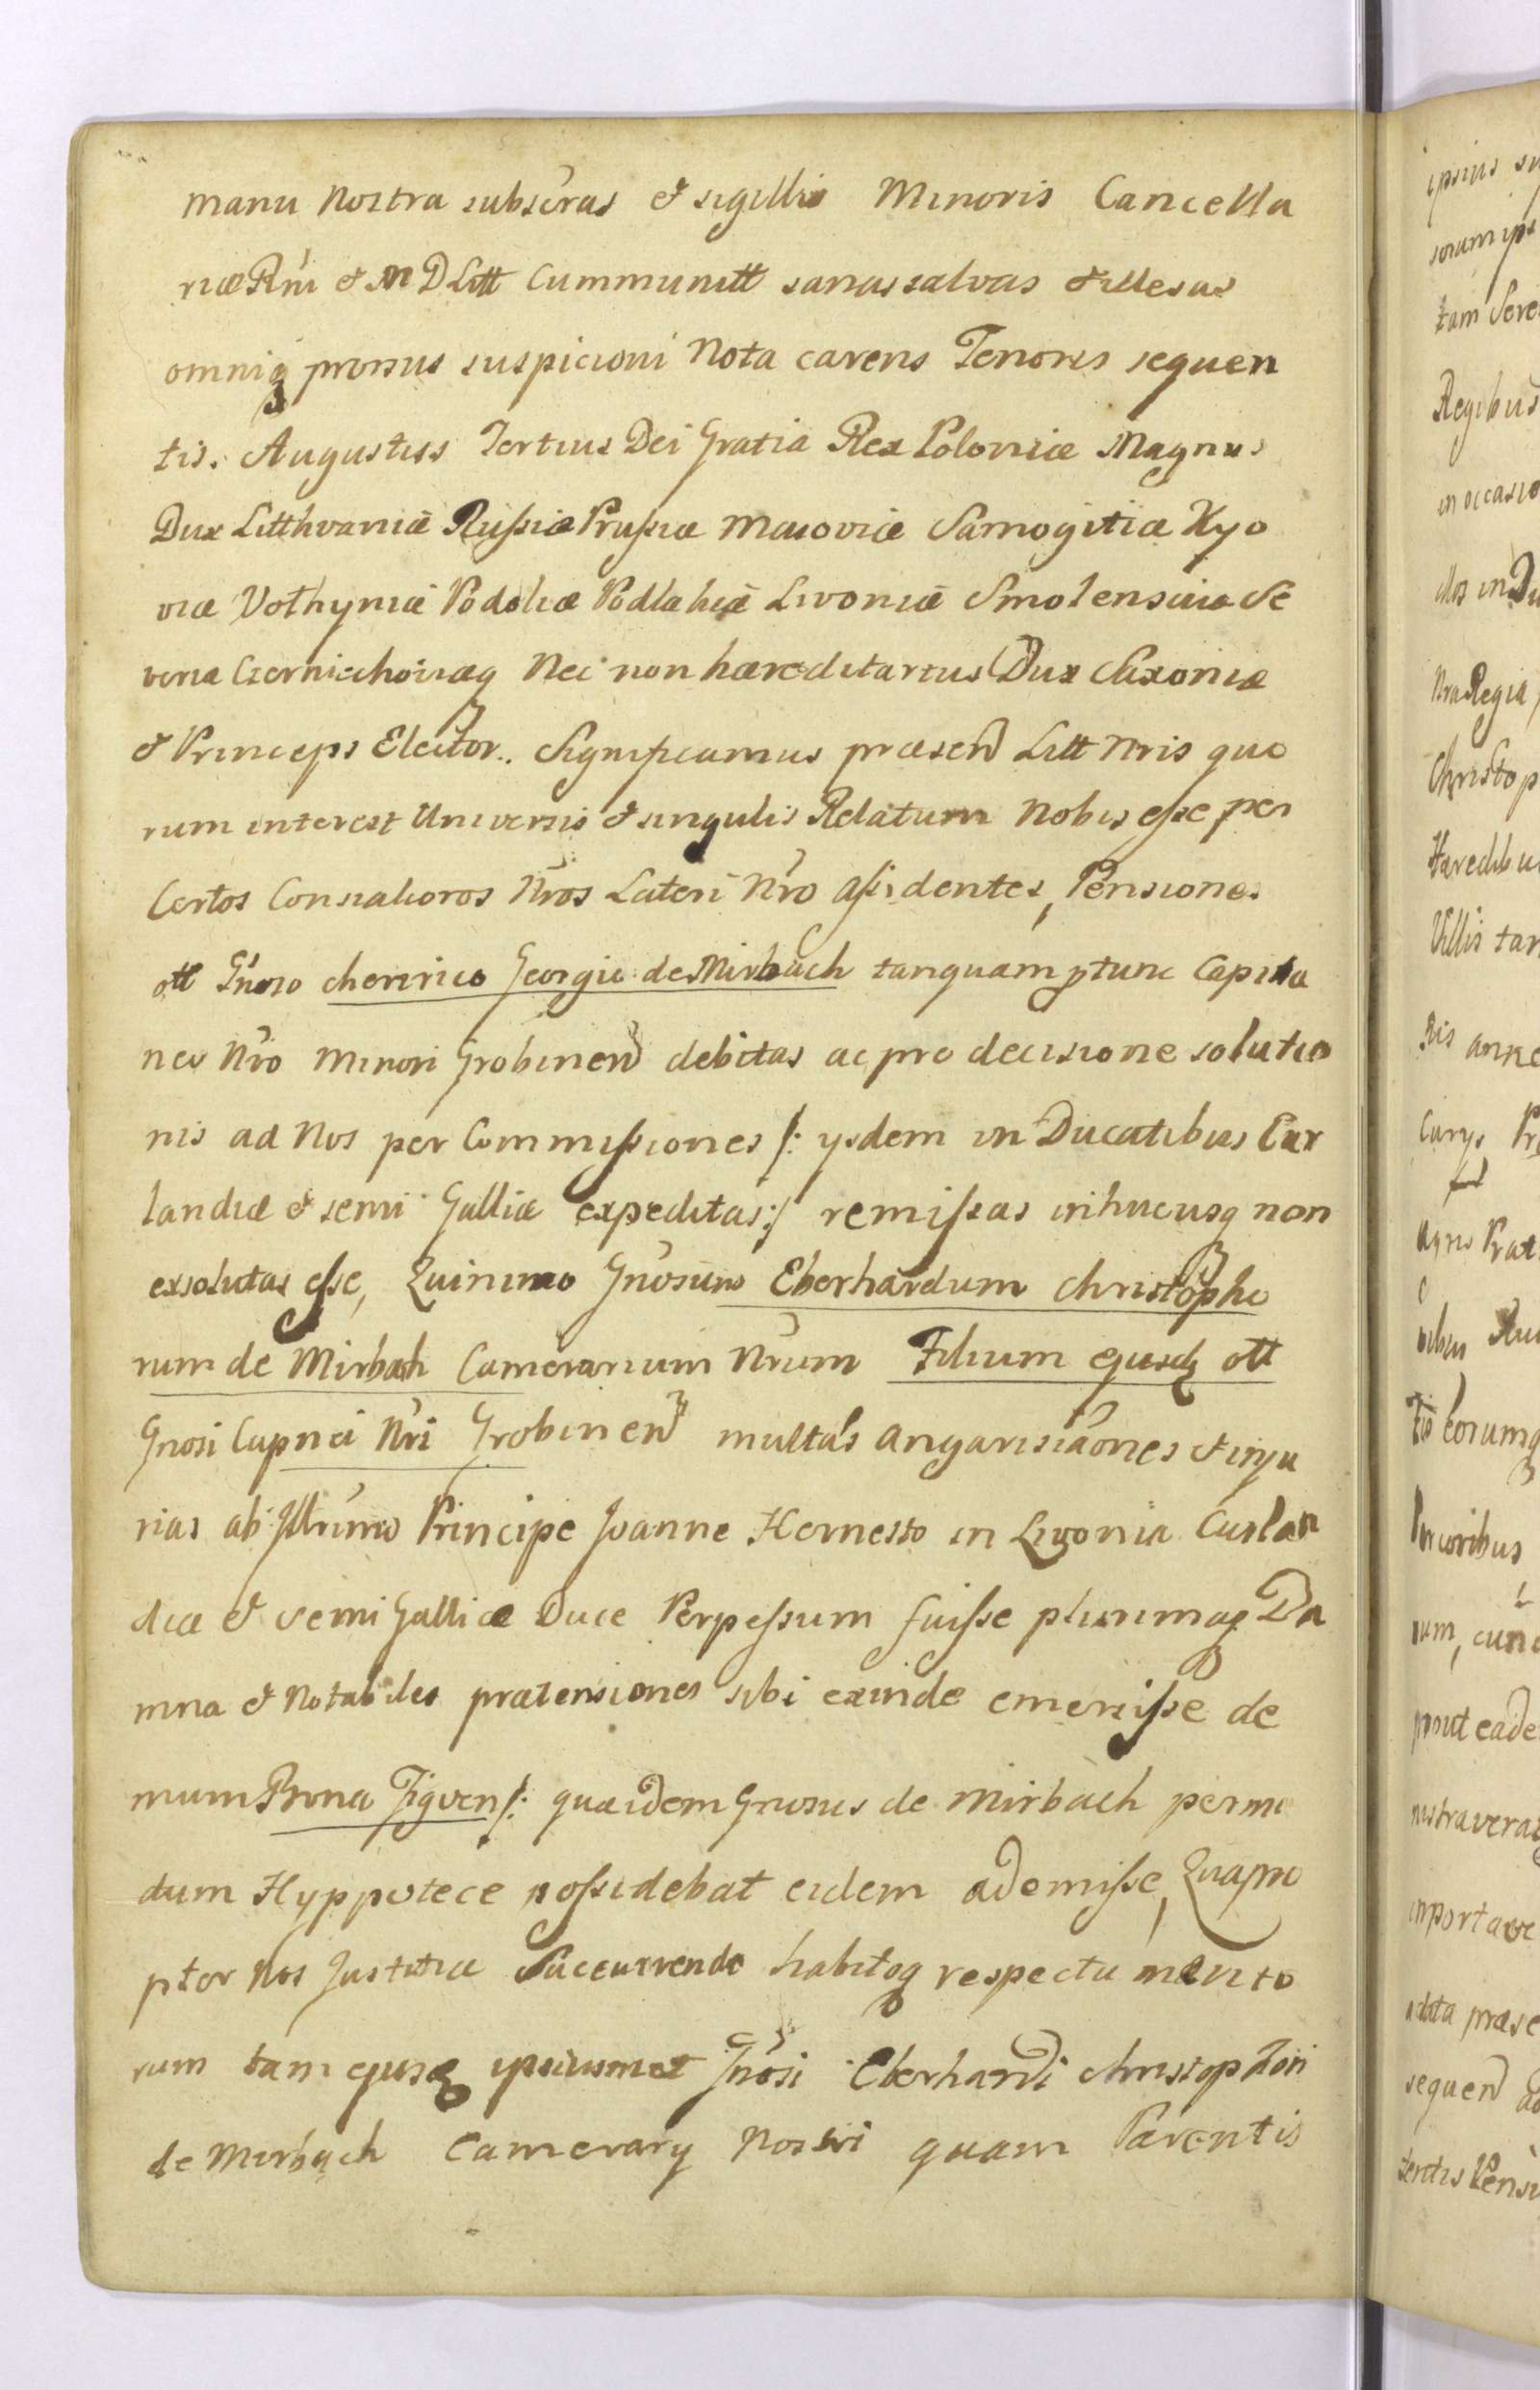 manu Nostra subscras & sigillis Minoris Cancella
riæ Rni & M D Litt Cummunitt sanas salvas & illesas
omniq prorsus suspicioni Nota carens Tenoris sequen
tis. Augustus Tertius Dei Gratia Rex Poloniæ Magnus
Dux Litthvaniæ Russiæ Prussiæ Masoviæ Samogitiæ Kyo
viæ Volhyniæ Podoliæ Podlahiæ Livoniæ Smolensciæ Se
veria Czerniechoviæq Nec non hæreditarius Dux Saxoniæ
& Princeps Elector. Significamus præsen Litt Nris quo
rum interest Universis & singulis Relatum Nobis esse per
Certos Consiliaros Nros Lateri Nro assidentes, Pensiones
ott Gnoso Georgio de Mirbach tanquam ptunc Capita
neo Nro Minori Grobinen debitas ac pro decisione solutio
nis ad Nos per Commissiones /: ysdem in Ducatibus Cur
landiæ & semi Galliæ expeditas :/ remissas inhucusq non
exsolutas esse, Quinimo Gnosum Eberhardum Christopho
rum de Mirbach Camerarium Nrum Filium ejusdq ott
Gnosi Capnei Nri Grobinen multas angarisiaones & inju
rias ab Illrimo Principe Joanne Hernesto in Livonia Curlan
diæ & semi Galliæ Duce Perpessum fuisse plurimaq Da
mna & Notabiles prætensiones sibi exinde emersisse de
mum Bona Tigven /: quæidem Gnosus de Mirbach per mo
dum Hyppotece possidebat eidem ademisse, Quapro
pter Nos Justitiæ Succurrendo habitoq respectu merito
rum tam ejusq ipsiusmet Gnosi Eberhardi Christophori
de Mirbach Camerary Nostri quam Parentis